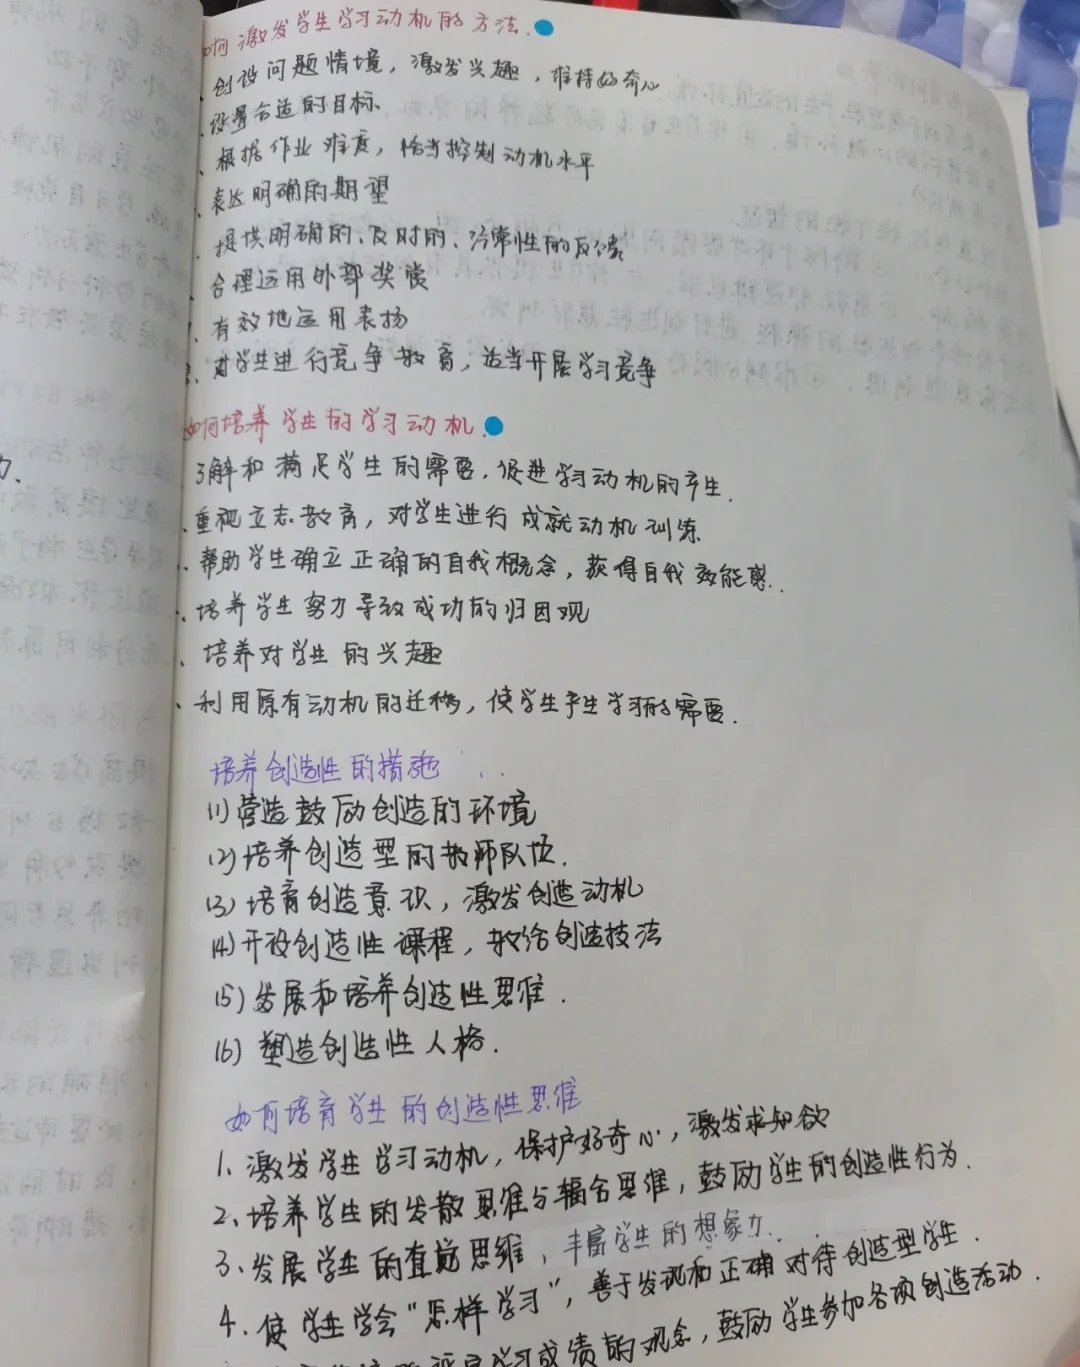 如何激发学生学习动机的方法.
创设问题情境，激发兴趣，维持好奇心
设置合适的目标.
根据作业难度，恰当控制动机水平
表达明确的期望
提供明确的、及时的、经常性的反馈
合理运用外部奖赏
有效地运用表扬
对学生进行竞争教育，适当开展学习竞争
如何培养学生的学习动机.
了解和满足学生的需要，促进学习动机的产生.
重视立志教育，对学生进行成就动机训练
帮助学生确立正确的自我概念，获得自我效能感.
培养学生努力导致成功的归因观
培养对学生的兴趣
利用原有动机的迁移，使学生产生学习的需要.
培养创造性的措施
(1)营造鼓励创造的环境
(2)培养创造型的教师队伍.
(3)培育创造意识，激发创造动机
(4)开设创造性课程，教给创造技法
(5)发展和培养创造性思维.
(6)塑造创造性人格.
如何培育学生的创造性思维
1、激发学生学习动机，保护好奇心，激发求知欲
2、培养学生的发散思维与辐合思维，鼓励学生的创造性行为.
3、发展学生的直觉思维，丰富学生的想象力.
4、使学生学会“怎样学习”，善于发现和正确对待创造型学生.
学习成绩的观念，鼓励学生参加各项创造活动.